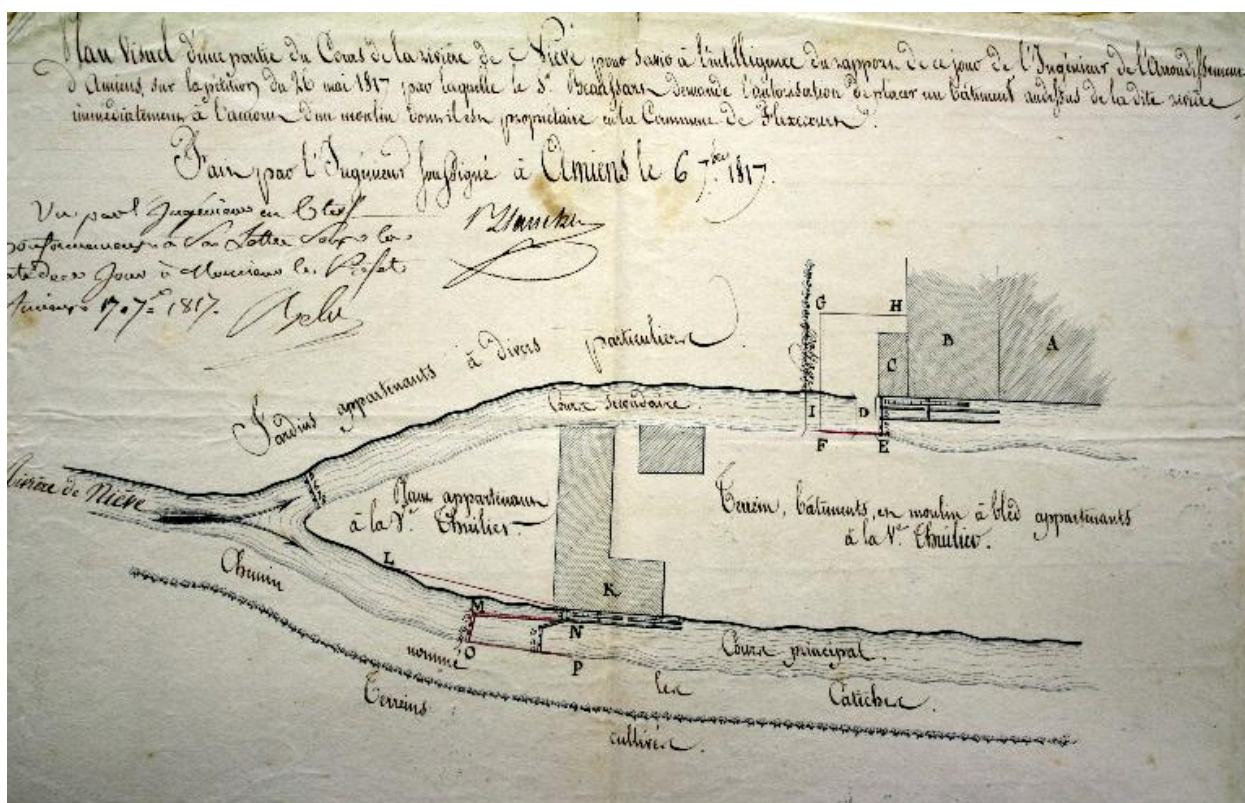 Plan Visuel d'une partie du Cours de la rivière de Nièvre pour servir à l'intelligence du rapport de ce jour de l'Ingénieur de l'Arrondissement
d'Amiens, sur la pétition du 26 mai 1817 par laquelle le Sr. demande l'autorisation de placer un bâtiment audessus de la dite rivière
immédiatement à l'amont d'un moulin dont il est propriétaire en la Commune de Flixecourt.
Fait par l'Ingénieur soussigné à Amiens le 6 7bre 1817.
Vu par l'Ingénieur en Chef
conformément à Sa Lettre Sous la
date de ce Jour à Monsieur le Préfet
Amiens 17 7re 1817.
Jardins appartenants à divers particuliers.
G H
B A
C
Cours secondaire.
I D
F E
Rivière de Nièvre
Place appartenant
à la Ve. Thuilier
Terrein, bâtiments, et moulin à bled appartenants
à la Ve. Thuilier.
L
Chemin
K
M
N
nommé O P
Cours principal.
les Catiches
Terreins
cultivés.